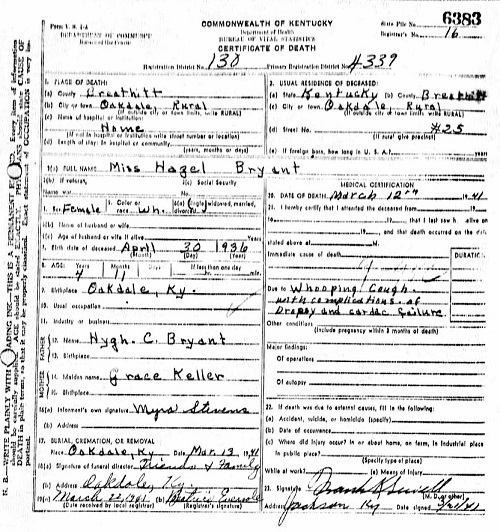 Form V. S. 1-A
DEPARTMENT OF COMMERCE
Bureau of the Census
COMMONWEALTH OF KENTUCKY
Department of Health
BUREAU OF VITAL STATISTICS
CERTIFICATE OF DEATH
State File No. 6383
Registrar's No. 16
Registration District No. 130 Primary Registration District No. 4339
1. PLACE OF DEATH:
(a) County Breathitt
(b) City or town Oakdale, Rural
(If outside city or town limits, write RURAL)
(c) Name of hospital or institution:
Home
(If not in hospital or institution write street number or location)
(d) Length of stay: In hospital or community
(years, months or days)
2. USUAL RESIDENCE OF DECEASED:
(a) State Kentucky (b) County Breathitt
(c) City or town Oakdale, Rural
(If outside city or town limits, write RURAL)
(d) Street No. #25
(If rural give precinct)
(e) If foreign born, how long in U. S. A.? years
3(a) FULL NAME Miss Hazel Bryant
3(b) If veteran, 3(c) Social Security
Name war No.
4. Sex Female 5. Color or race Wh. 6(a) Single, widowed, married, divorced
6(b) Name of husband or wife
6(c) Age of husband or wife if alive Years
7. Birth date of deceased April 30 1936
(Month) (Day) (Year)
8. AGE: Years Months Days If less than one day
4 11 hr. min.
9. Birthplace Oakdale, Ky.
10. Usual occupation
11. Industry or business
FATHER
12. Name Hygh. C. Bryant
13. Birthplace
MOTHER
14. Maiden name Grace Keller
15. Birthplace
16(a) Informant's own signature Myra Stevens
(b) Address
17. BURIAL, CREMATION, OR REMOVAL
Place Oakdale, Ky. Date Mar. 13, 1941
18(a) Signature of funeral director Friends & Family
(b) Address Oakdale, Ky.
19(a) March 22, 1941 (b)
(Date received by local registrar) (Registrar's signature)
MEDICAL CERTIFICATION
20. DATE OF DEATH March 12th 1941
21. I hereby certify that I attended the deceased from 19
19 to 19 that I last saw h alive on
19 and that death occurred on the date
stated above at M.
Immediate cause of death
DURATION
Due to Whooping Cough.
with complications of
Dropsy and cardac failure.
Other conditions
(Include pregnancy within 3 months of death)
Major findings:
Of operations
Of autopsy
22. If death was due to external causes, fill in the following:
(a) Accident, suicide, or homicide (specify)
(b) Date of occurrence
(c) Where did injury occur? In or about home, on farm, in industrial place
in public place?
(Specify type of place)
While at work? (e) Means of injury
23. Signature Frank K Sewell
(M. D. or other)
Address Jackson Ky Date signed 3/21/41